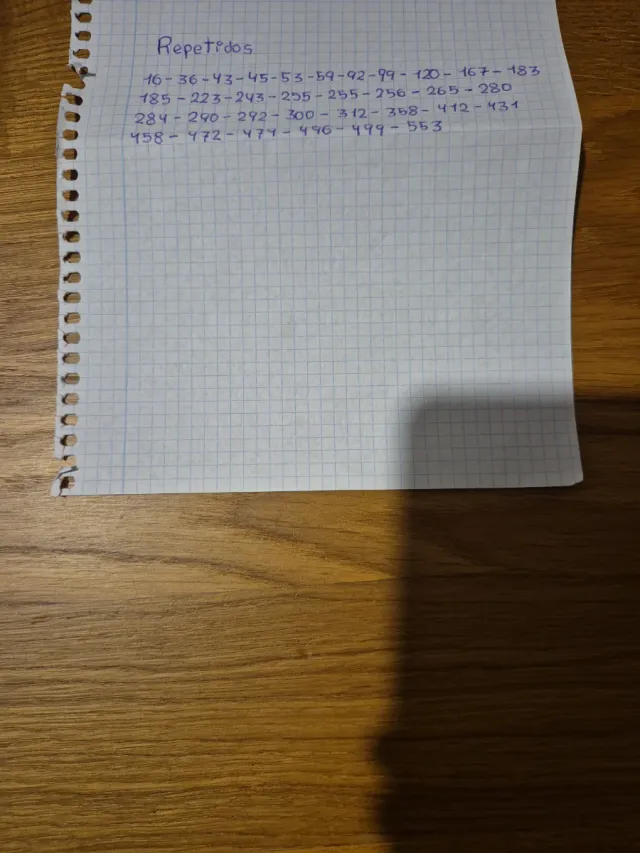 Repetidos
16-36-43-45-53-59-92-99-120-167-183
185-223-243-255-255-256-265-280
284-290-292-300-312-358-412-431
458-472-474-496-499-553